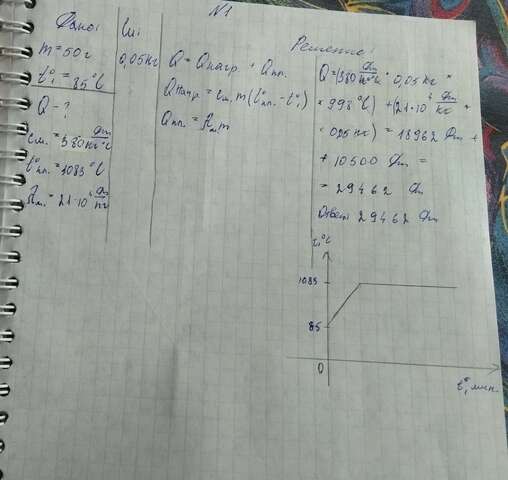 N1
Дано:
m = 50 г
t°₁ = 85 °C
Q - ?
cм. = 380 Дж/кг°C
t°пл. = 1083 °C
λм. = 21·10⁴ Дж/кг
Си:
0,05 кг
Q = Qнагр. + Qпл.
Qнагр = cм. m (t°пл. - t°₁)
Qпл. = λм. m
Решение:
Q = (380 Дж/кг°C · 0,05 кг ·
· 998 °C) + (21·10⁴ Дж/кг ·
· 0,05 кг) = 18962 Дж +
+ 10500 Дж =
= 29462 Дж
Ответ: 29462 Дж
t,°C
1083
85
0
t°, мин.